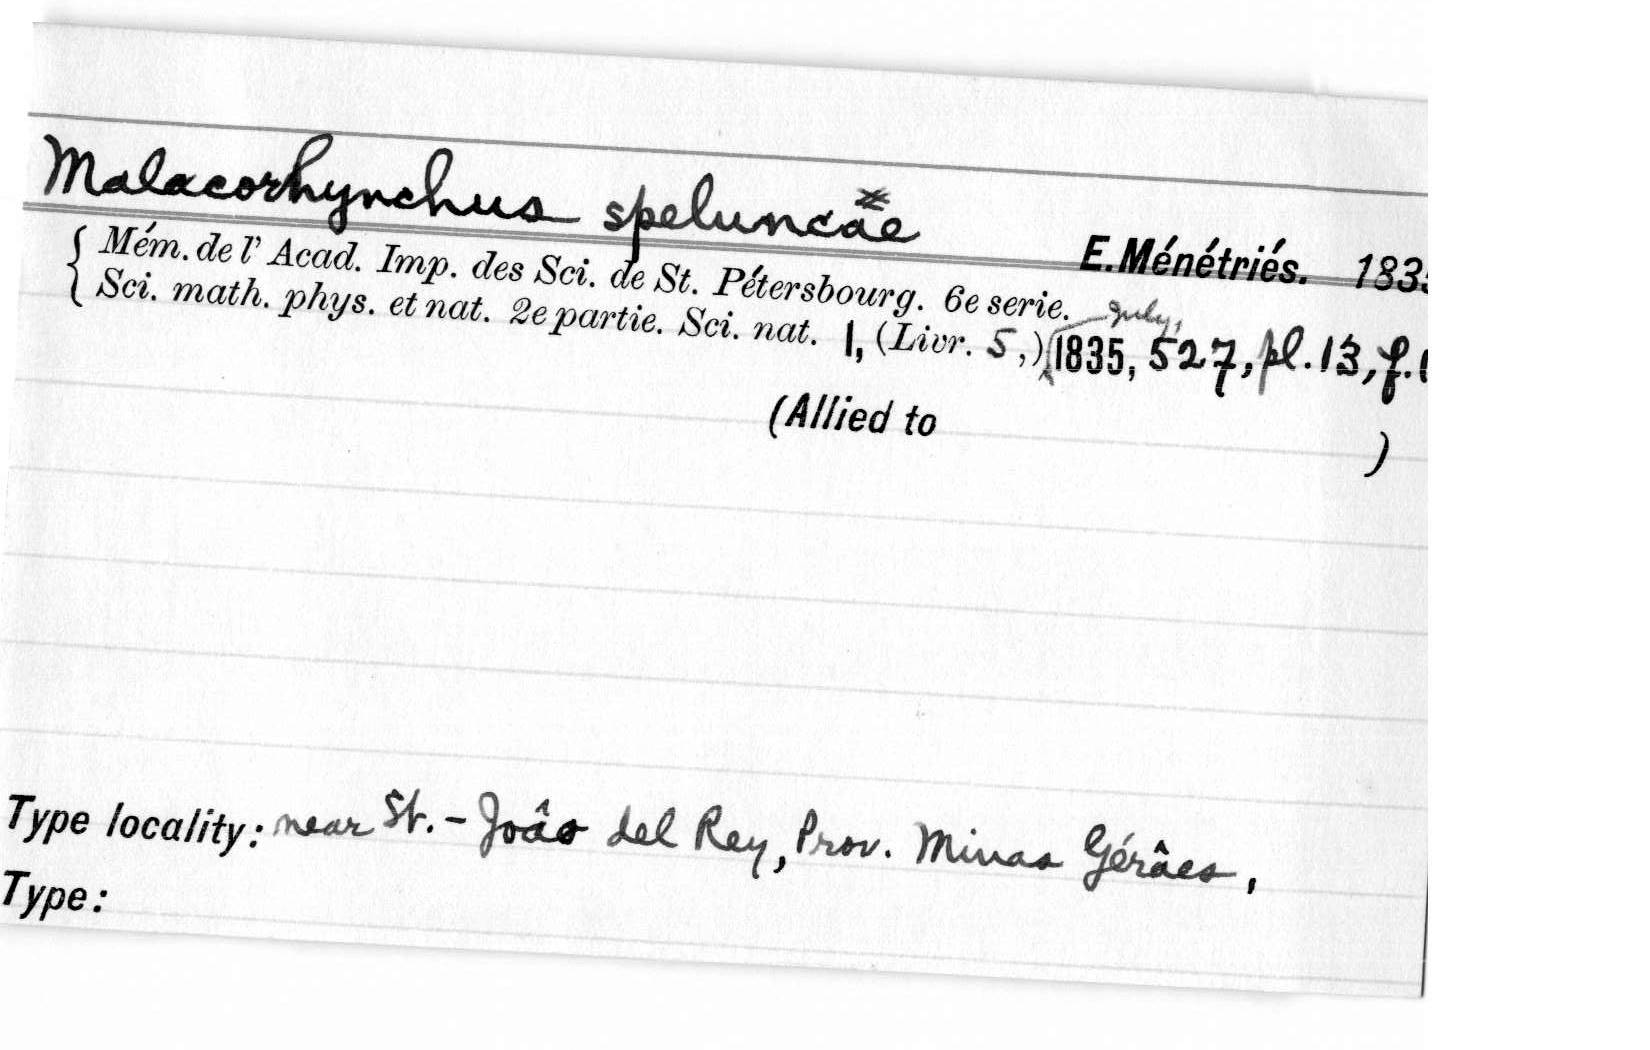 Malacorhynchus speluncae
E. Ménétriés. 183
{ Mém. de l' Acad. Imp. des Sci. de St. Pétersbourg. 6e serie.
{ Sci. math. phys. et nat. 2e partie. Sci. nat. 1, (Livr. 5,) July, 1835, 527, pl. 13, f.
(Allied to )
Type locality: near St.-Joâo del Rey, Prov. Minas Gérâes,
Type: